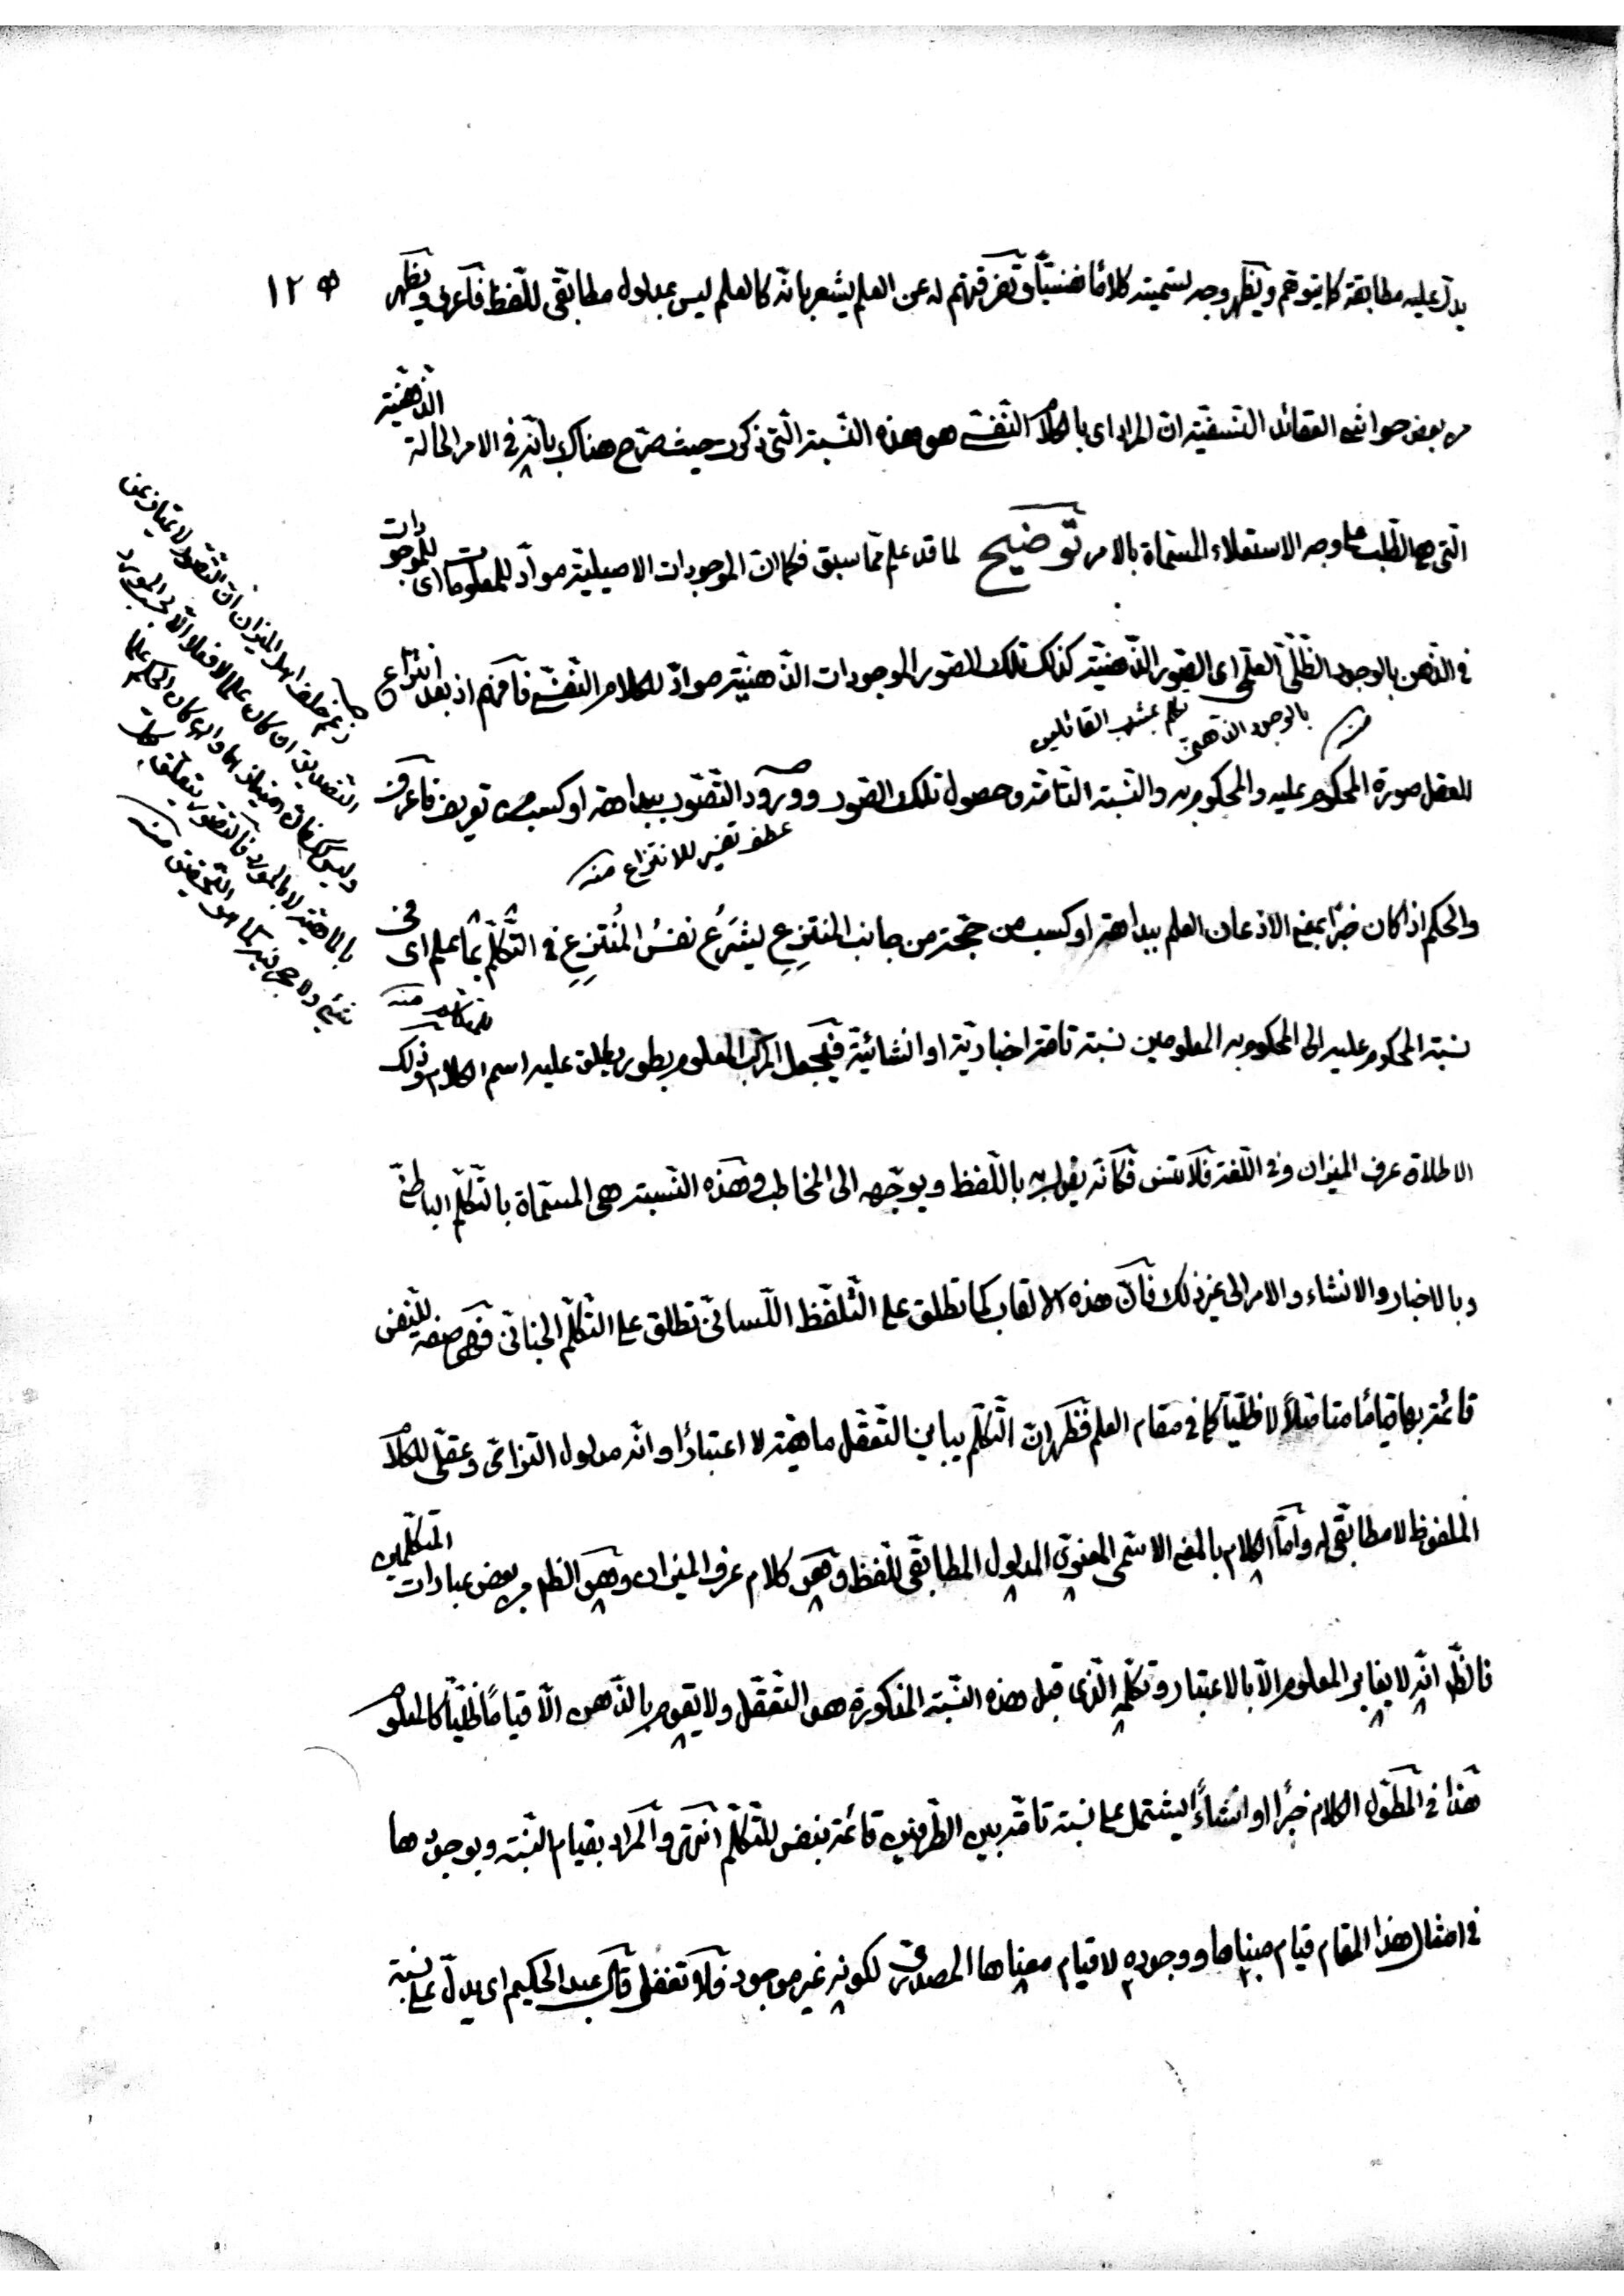 يدل عليه مطابقة كما يتوهم ويظهر وجه تسميته كلاما نفسيا وتفرقتهم له عن العلم يشعر بانه كالعلم ليس بمدلول مطابقي للفظ فاعرف ويظهر
ص ١٢
من بعض حواشي العقائد النسفية ان المراد اي بالكلام النفسي هو هذه النسبة التي ذكرت حيث صرح هناك بانه في الامر الحالة الذهنية
التي هي الطلب على وجه الاستعلاء المسماة بالامر توضيح لما قد علم مما سبق فكما ان الموجودات الاصيلية مواد للمعلومات اي للموجودات
في الذهن بالوجود الظلي العلمي اي الصور الذهنية كذلك تلك الصور الموجودات الذهنية مواد للكلام النفسي فافهم اذ بعد انتزاع
تكلم بمشرب القائلين بالوجود الذهني منه
العقل صورة المحكوم عليه والمحكوم به والنسبة التامة وحصول تلك الصور وورود التصور ببداهة او كسب من تعريف فاعرف
عطف تفسير للانتزاع منه
والحكم اذا كان خبرا بمعنى الاذعان العلم ببداهة او كسب من حجة من جانب المنتزع يشرع نفس المنتزع في التكلم بما علم اي في
نسبة المحكوم عليه الى المحكوم به المعلومين نسبة تامة اخبارية او انشائية فيجعل المركب المعلوم بطور يطلق عليه اسم الكلام وذلك
الاطلاق عرف الميزان وفي اللغة فلا تنس فكانه يقول به باللفظ ويوجهه الى المخاطب وهذه النسبة هي المسماة بالتكلم الباطني
وبالاخبار والانشاء والامر الى غير ذلك فان هذه الالقاب كما تطلق على التلفظ اللساني تطلق على التكلم الجناني فهي صفة للنفس
قائمة بها قياما متاصلا لا ظليا كما في مقام العلم فظهر ان التكلم يباين التعقل ماهية لا اعتبارا وانه مدلول التزامي وعقلي للكلام
الملفوظ لا مطابقي له واما الكلام بالمعنى الاسمي المعنوي المدلول المطابقي للفظ وهو كلام عرف الميزان وهو النظم في بعض عبارات المتكلمين
فالظ انه لا يغاير المعلوم الا بالاعتبار وتكلمه الذي قبل هذه النسبة المذكورة هو التعقل ولا يقوم بالذهن الا قياما ظليا كالمعلوم
هذا في المطول الكلام خبرا او انشاء يشتمل على نسبة تامة بين الطرفين قائمة بنفس المتكلم انتهى والمراد بقيام النسبة وبوجودها
في امثال هذا المقام قيام مبناها ووجوده لا قيام معناها المصدري لكونه غير موجود فلا تغفل قال عبد الحكيم اي يدل على نسبة
زعم خلف اهل الميزان ان التصور لا يمتاز عن
التصديق ان كان علما لا فعلا الا في المورد
وليس كك فان امتياز
بالماهية لا بالمورد فالتصور يتعلق بكل
شئ ولا حجر فيه كما هو التحقيق منه